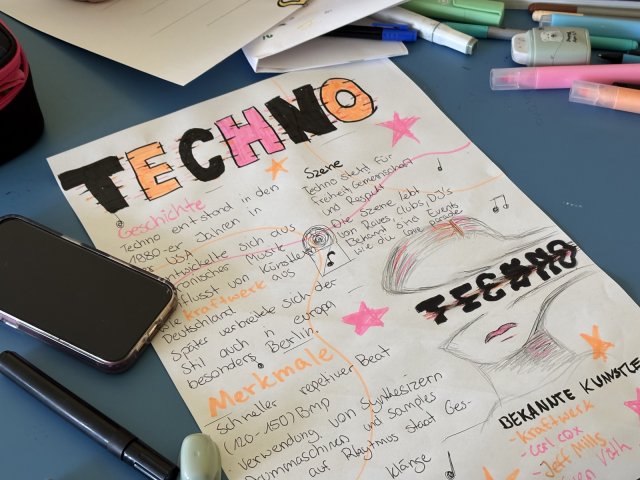 TECHNO
Geschichte
Techno entstand in den
1980-er Jahren in
USA
entwickelte sich aus
Musik
von Künstlern
wie kraftwerk aus
Deutschland.
Später verbreitete sich der
Stil auch in europa
besonders Berlin.
Merkmale
Schneller repetiver Beat
(120-150) Bmp
verwendung von Synthesizern
Drummaschinen und samples
auf Rhytmus staat Ges-
klänge
Szene
Techno steht für
freiheit, Gemeinschaft
und Respekt
Die Szene lebt
von Raves, Clubs, DJ's
Bekannt sind Events
wie die love parade
TECHNO
BEKANNTE KÜNSTLE
- kraftwerk
- carl cox
- Jeff Mills